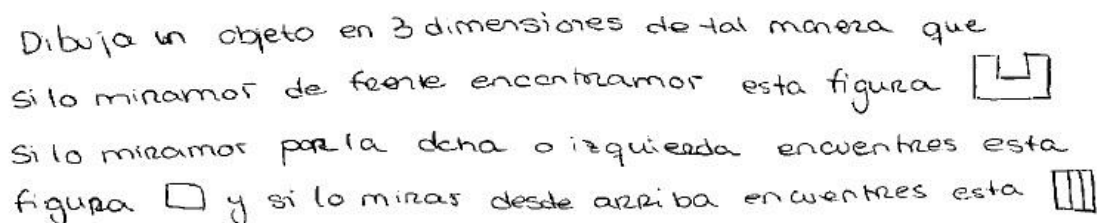 Dibuja un objeto en 3 dimensiones de tal manera que
si lo miramos de frente encontramos esta figura
si lo miramos por la dcha o izquierda encuentres esta
figura y si lo miras desde arriba encuentres esta